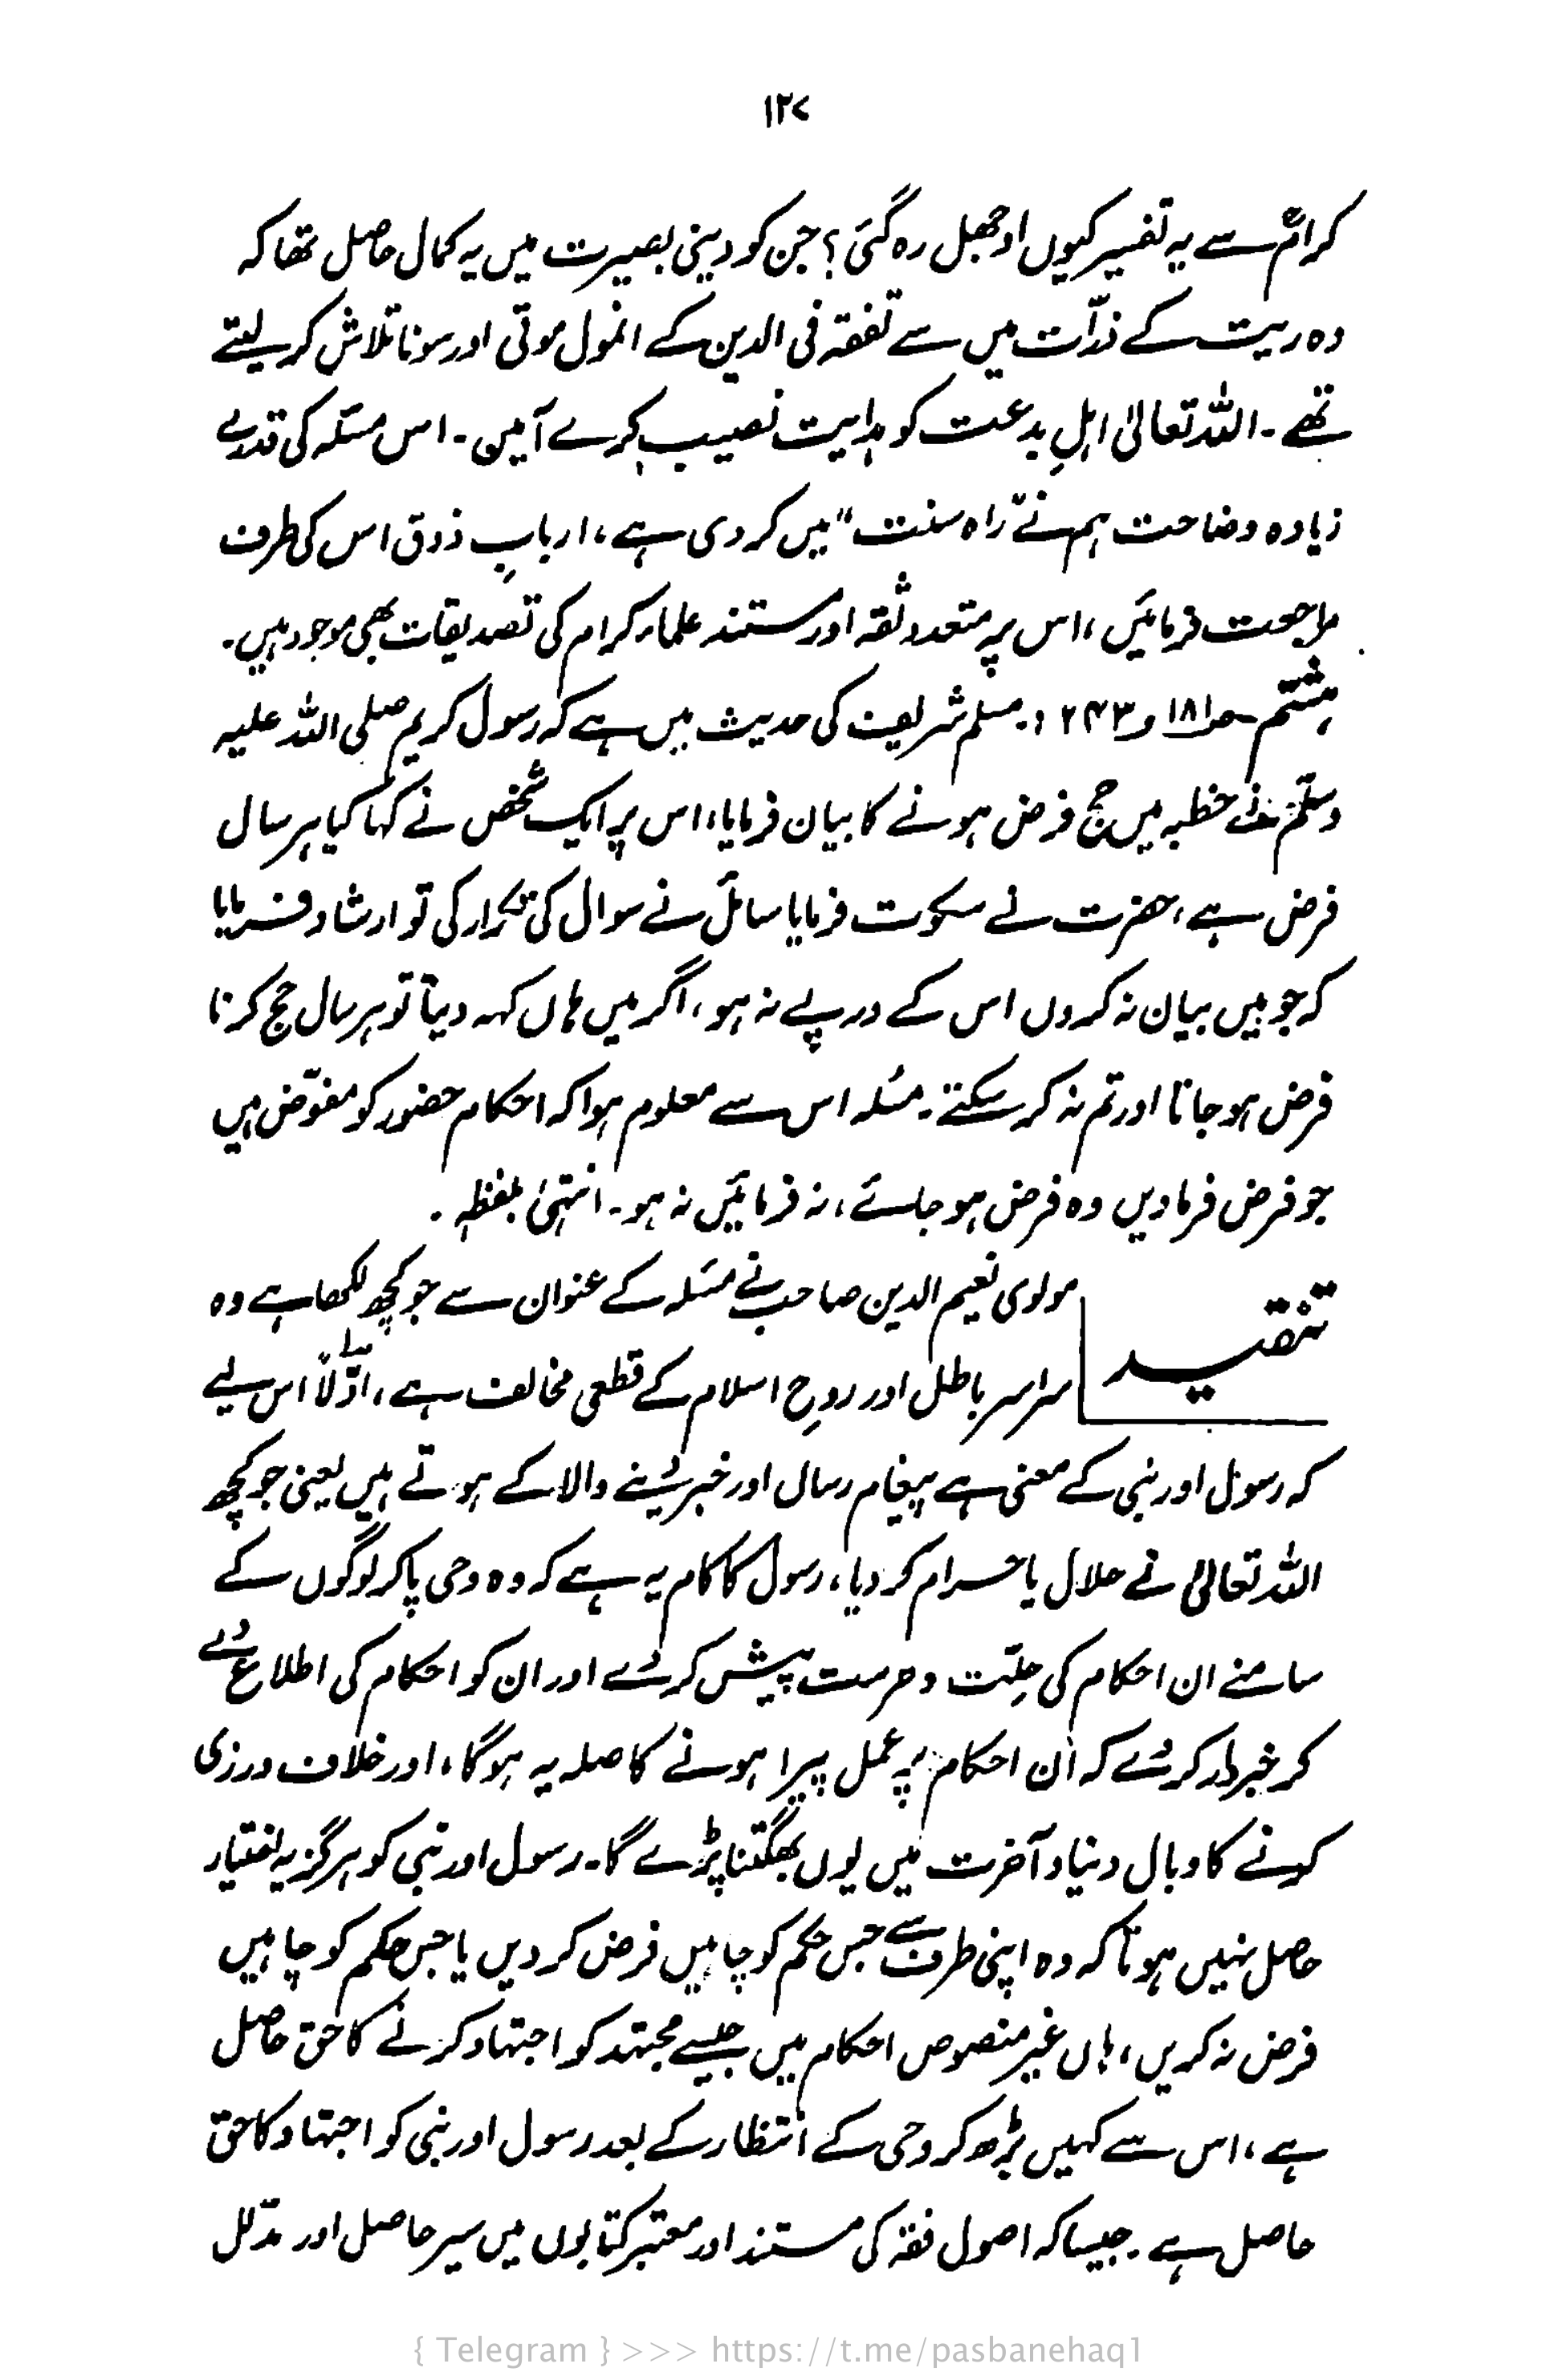 ۱۲۷
کرامؓ سے یہ تفسیر کیوں اوجھل رہ گئی؟ جن کو دینی بصیرت میں یہ کمال حاصل تھا کہ
وہ ریت کے ذرّات میں سے تفقہ فی الدین کے انمول موتی اور سونا تلاش کر لیتے
تھے۔ اللہ تعالیٰ اہلِ بدعت کو ہدایت نصیب کرے آمین۔ اس مسئلہ کی قدرے
زیادہ وضاحت ہم نے "راہ سنت" میں کر دی ہے، اربابِ ذوق اس کی طرف
مراجعت فرمائیں، اس پر متعدد ثقہ اور مستند علماء کرام کی تصدیقات بھی موجود ہیں۔
ہشتم ص۱۸۱ و ۲۴۳: مسلم شریف کی حدیث میں ہے کہ رسول کریم صلی اللہ علیہ
وسلّم نے خطبہ میں حج فرض ہونے کا بیان فرمایا، اس پر ایک شخص نے کہا کیا ہر سال
فرض ہے، حضرت نے سکوت فرمایا سائل نے سوال کی تکرار کی تو ارشاد فرمایا
کہ جو میں بیان نہ کروں اس کے درپے نہ ہو، اگر میں ہاں کہہ دیتا تو ہر سال حج کرنا
فرض ہو جاتا اور تم نہ کر سکتے۔ مسئلہ اس سے معلوم ہوا کہ احکام حضور کو مفوّض ہیں
جو فرض فرما دیں وہ فرض ہو جائے، نہ فرمائیں نہ ہو۔ انتہیٰ بلفظہٖ۔
تنقید
مولوی نعیم الدین صاحب نے مسئلہ کے عنوان سے جو کچھ لکھا ہے وہ
سراسر باطل اور روحِ اسلام کے قطعی مخالف ہے، اوّلاً اس لیے
کہ رسول اور نبی کے معنی ہے پیغام رساں اور خبر دینے والا کے ہوتے ہیں یعنی جو کچھ
اللہ تعالیٰ نے حلال یا حرام کر دیا، رسول کا کام یہ ہے کہ وہ وحی پا کر لوگوں کے
سامنے ان احکام کی حلّت و حرمت پیش کر دے اور ان کو احکام کی اطلاع دے
کر خبردار کر دے کہ اُن احکام پر عمل پیرا ہونے کا صلہ یہ ہو گا، اور خلاف ورزی
کرنے کا وبال دنیا و آخرت میں یوں بھگتنا پڑے گا۔ رسول اور نبی کو ہرگز یہ اختیار
حاصل نہیں ہوتا کہ وہ اپنی طرف سے جس حکم کو چاہیں فرض کر دیں یا جس حکم کو چاہیں
فرض نہ کریں، ہاں غیر منصوص احکام میں جیسے مجتہد کو اجتہاد کرنے کا حق حاصل
ہے، اس سے کہیں بڑھ کر وحی کے انتظار کے بعد رسول اور نبی کو اجتہاد کا حق
حاصل ہے۔ جیسا کہ اصول فقہ کی مستند اور معتبر کتابوں میں سیر حاصل اور مدلّل
{ Telegram } >>> https://t.me/pasbanehaq1